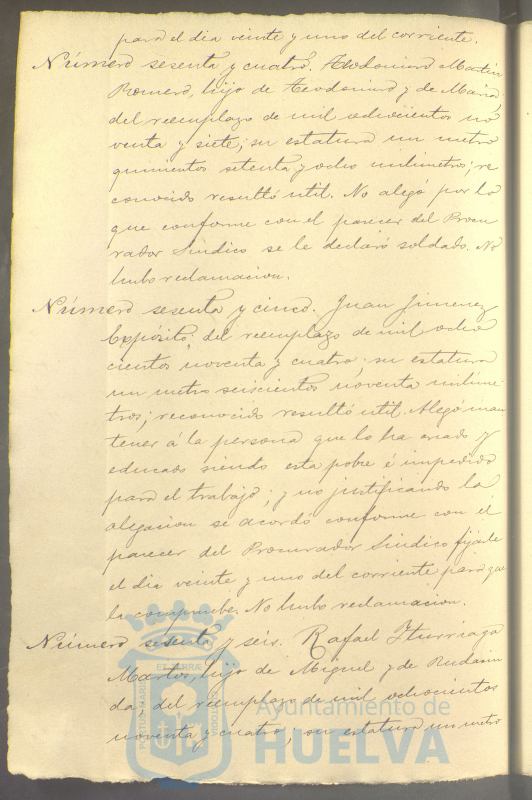 para el dia veinte y uno del corriente.
Número sesenta y cuatro. Teodomiro Martin
Romero, hijo de Teodomiro y de Maria,
del reemplazo de mil ochocientos no
venta y siete; su estatura un metro
quinientos setenta y ocho milimetros; re
conocido resultó util. No alegó por lo
que conforme con el parecer del Procu
rador Sindico se le declaró soldado. No
hubo reclamacion.
Número sesenta y cinco. Juan Jimenez
Expósito, del reemplazo de mil ocho
cientos noventa y cuatro; su estatura
un metro seiscientos noventa milime
tros; reconocido resultó util. Alegó man
tener á la persona que lo ha criado y
educado siendo esta pobre é impedida
para el trabajo; y no justificando la
alegacion se acordó conforme con el
parecer del Procurador Sindico fijarle
el dia veinte y uno del corriente para que
la compruebe. No hubo reclamacion.
Número sesenta y seis. Rafael Iturriaga
Martos, hijo de Miguel y de Rudesin
da, del reemplazo de mil ochocientos
noventa y cuatro; su estatura un metro
Ayuntamiento de
HUELVA